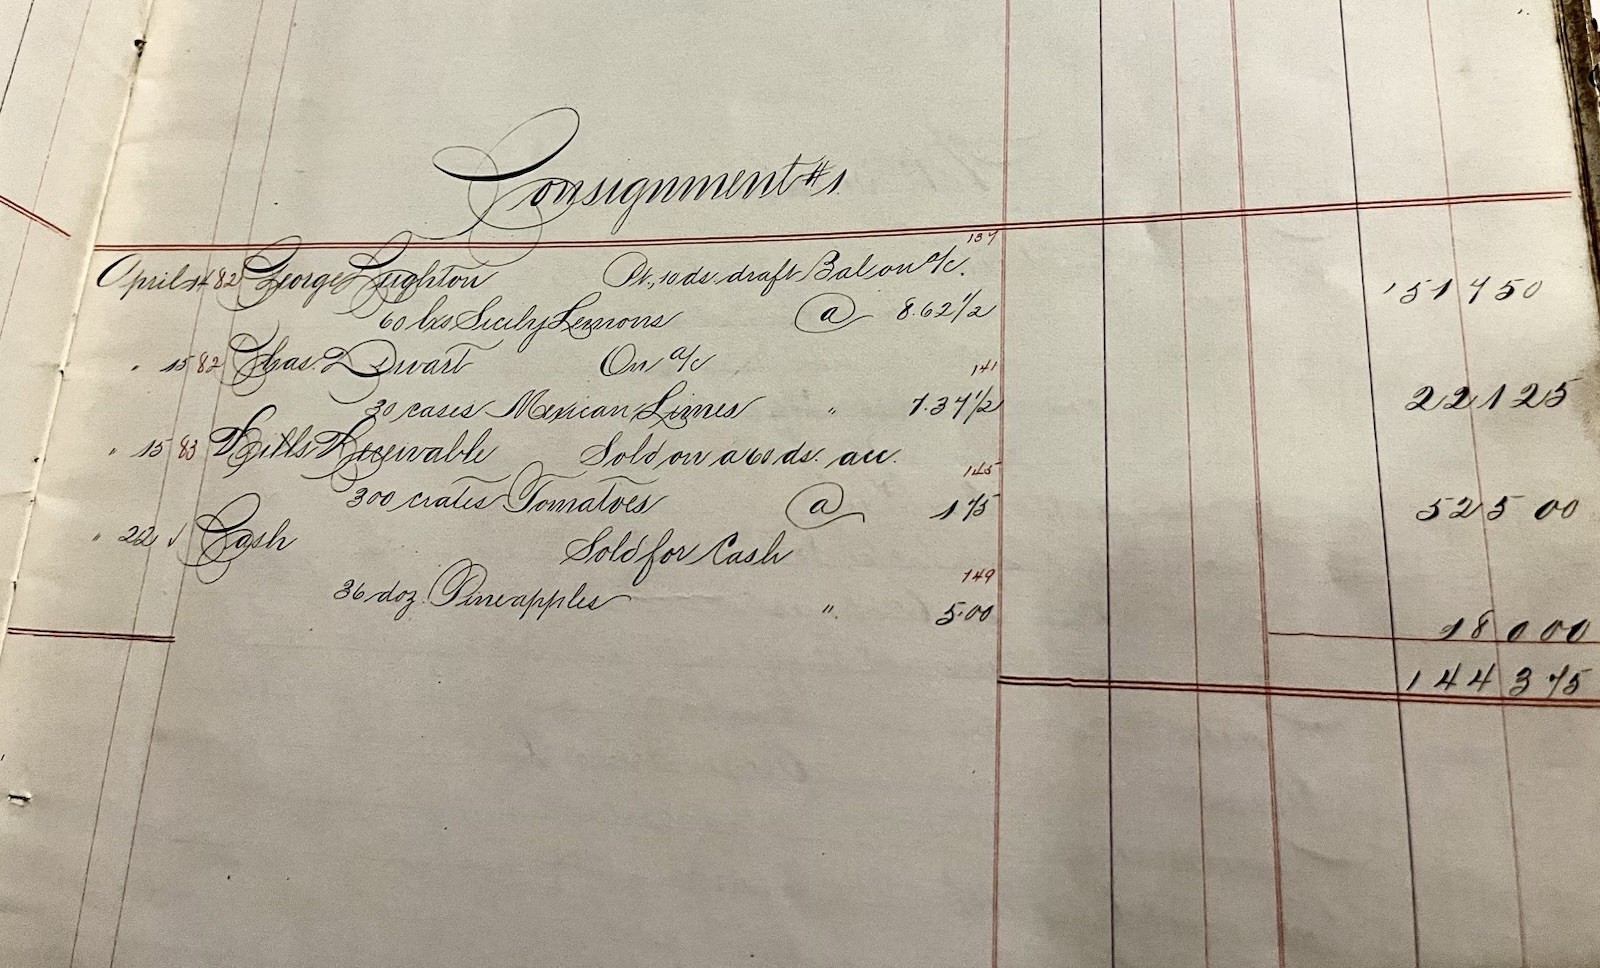 Consignment #1.
137
April 14 82 George Leighton Pt., 10 ds. draft Bal on a/c.
60 bxs Sicily Lemons @ 8.62 1/2 517 50
" 15 82 Chas. On a/c 141
30 cases Mexican Limes " 7.37 1/2 221 25
" 15 83 Bills Receivable Sold on a 60 ds. acc. 145
300 crates Tomatoes @ 1 75 525 00
" 22 √ Cash Sold for Cash
149
36 doz. Pineapples " 5.00 180 00
1443 75